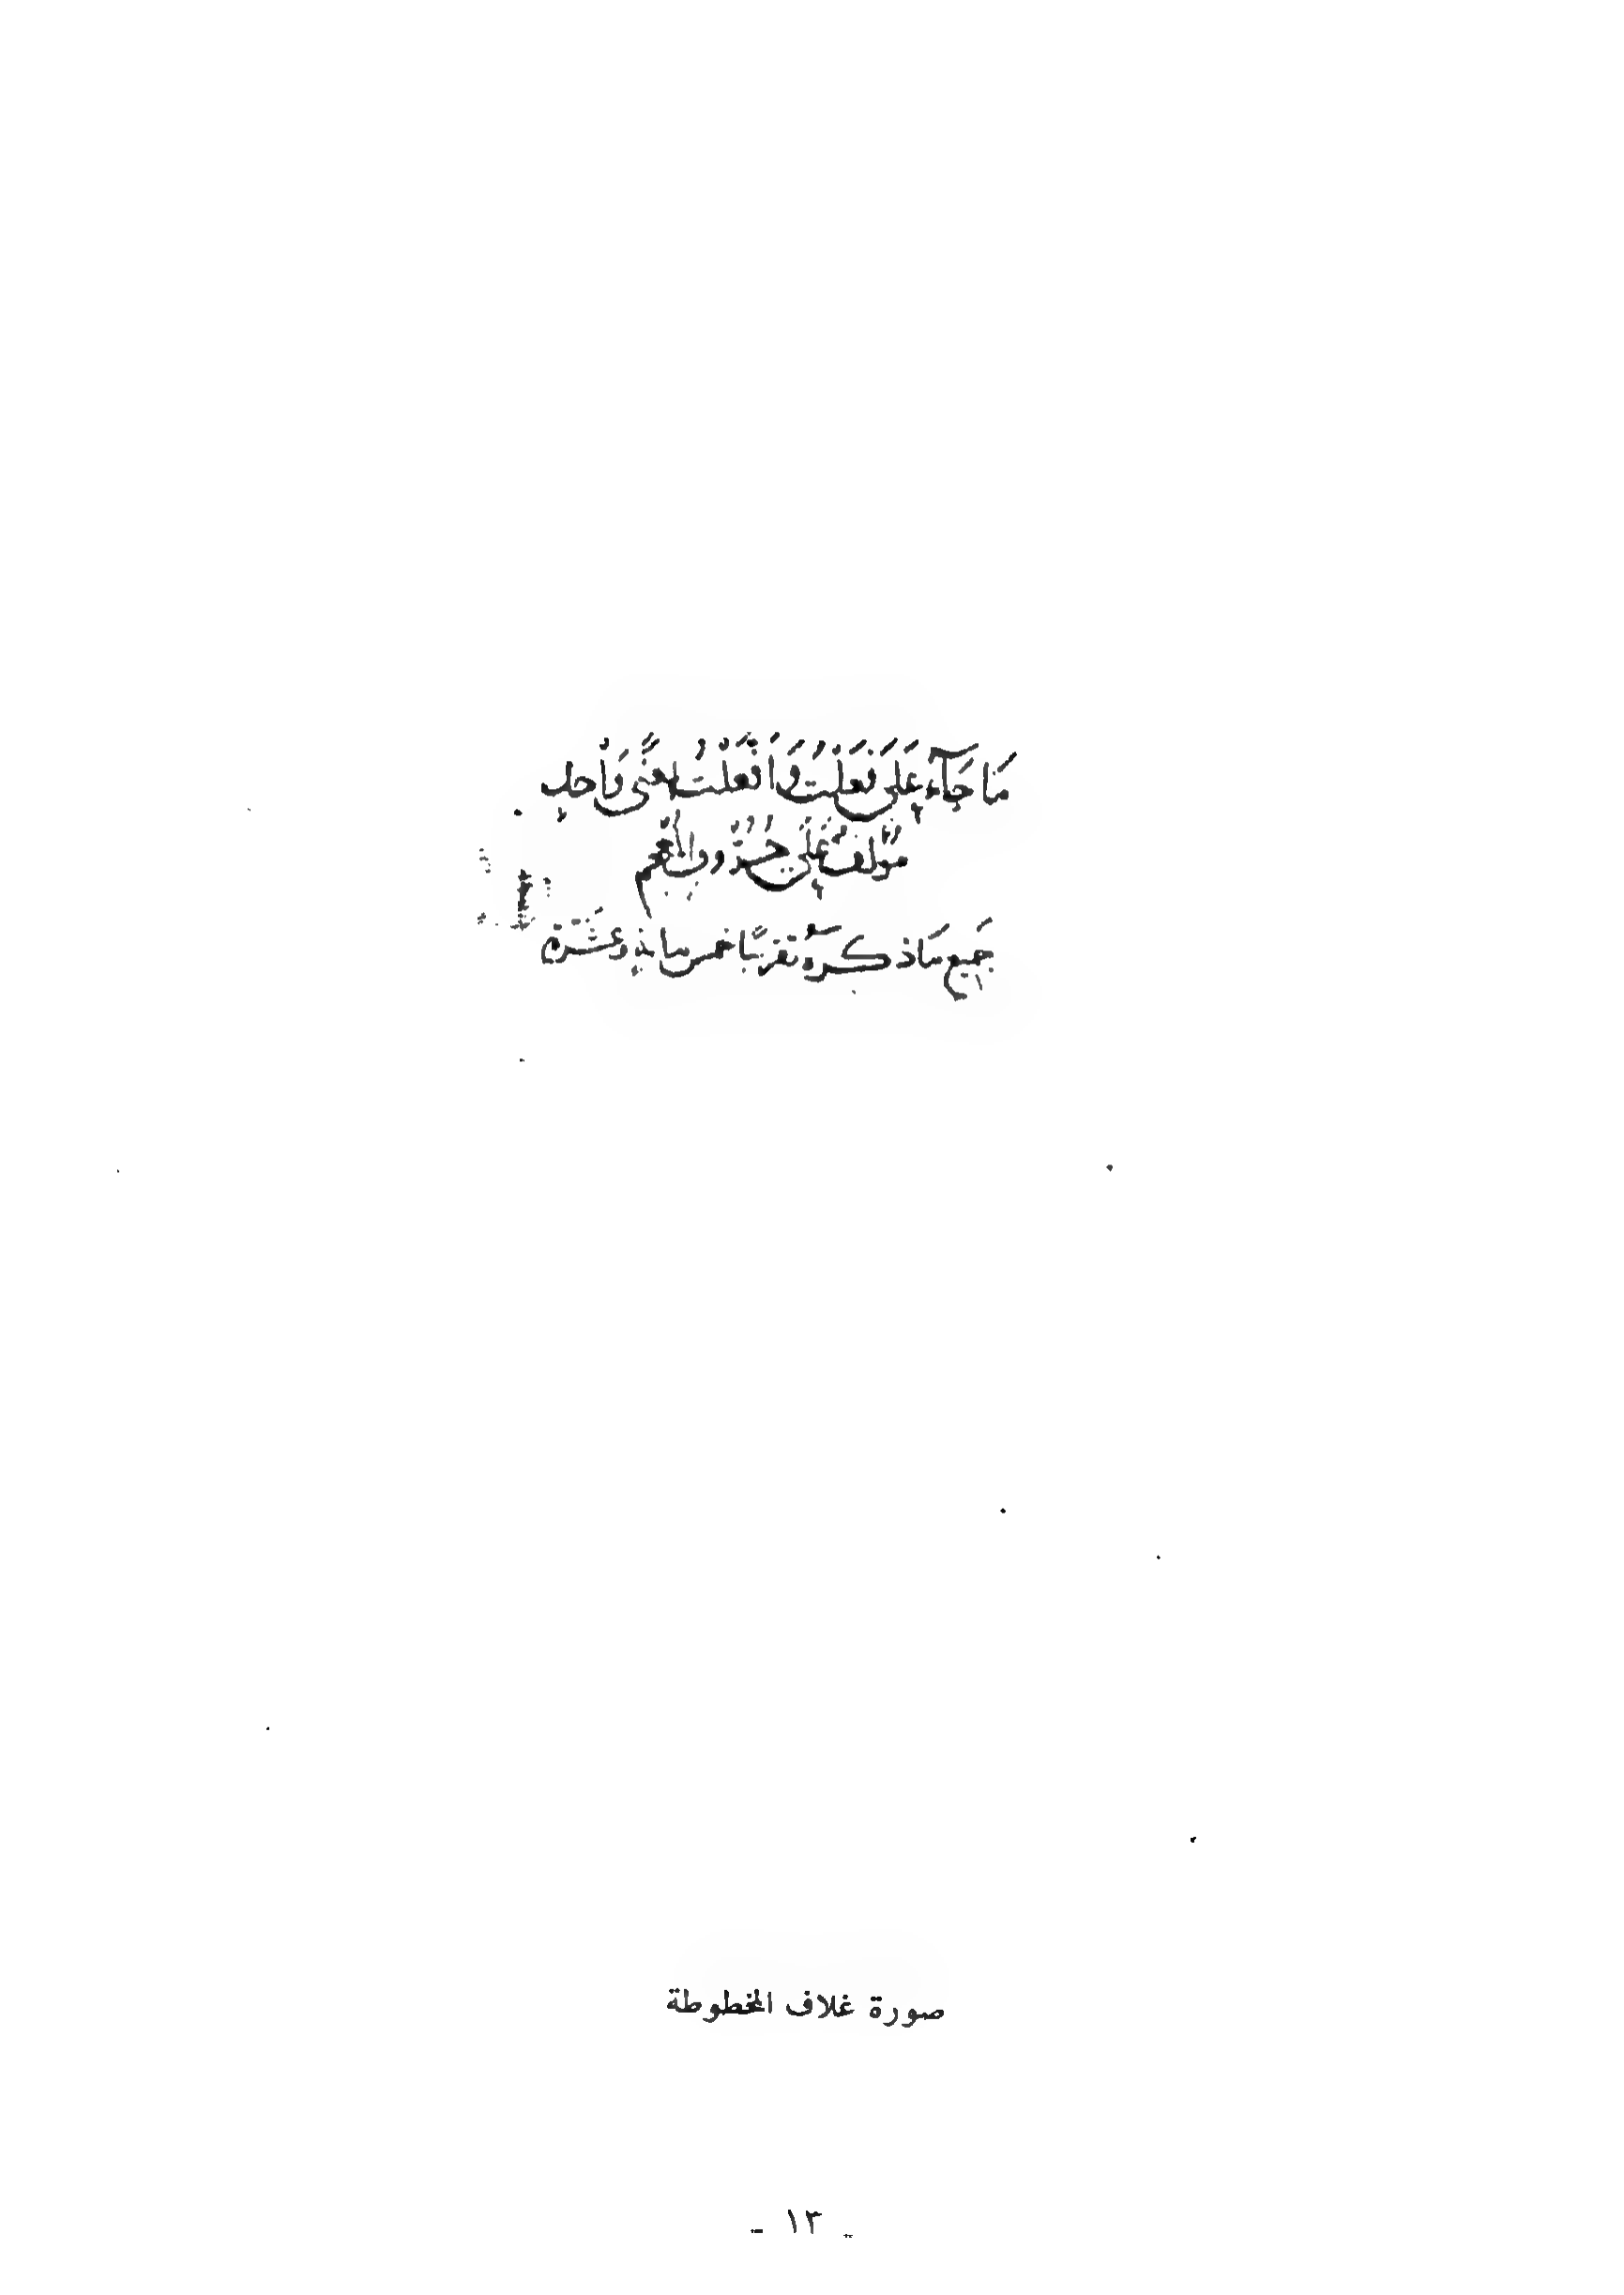 مَا جَآءَ عَلَى فَعَلْتُ وَأَفْعَلْتُ بمعْنًى وَاْحدٍ
مؤلفٌ عَلَى حُرُوفِ المُعْجَمِ
جَميع مَا ذكره تقريبًا خمس مائة وعشَرَة
صورة غلاف المخطوطة
ـ ١٣ ـ